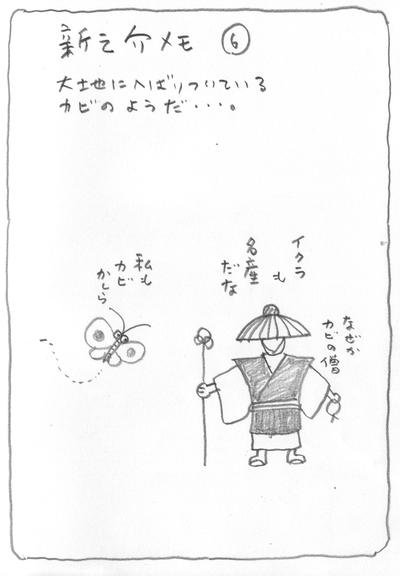 新之介メモ ⑥
大地にへばりついている
カビのようだ・・・。
イクラ
も
名産
だな
私も
カビ
かしら
なぜか
カビの僧